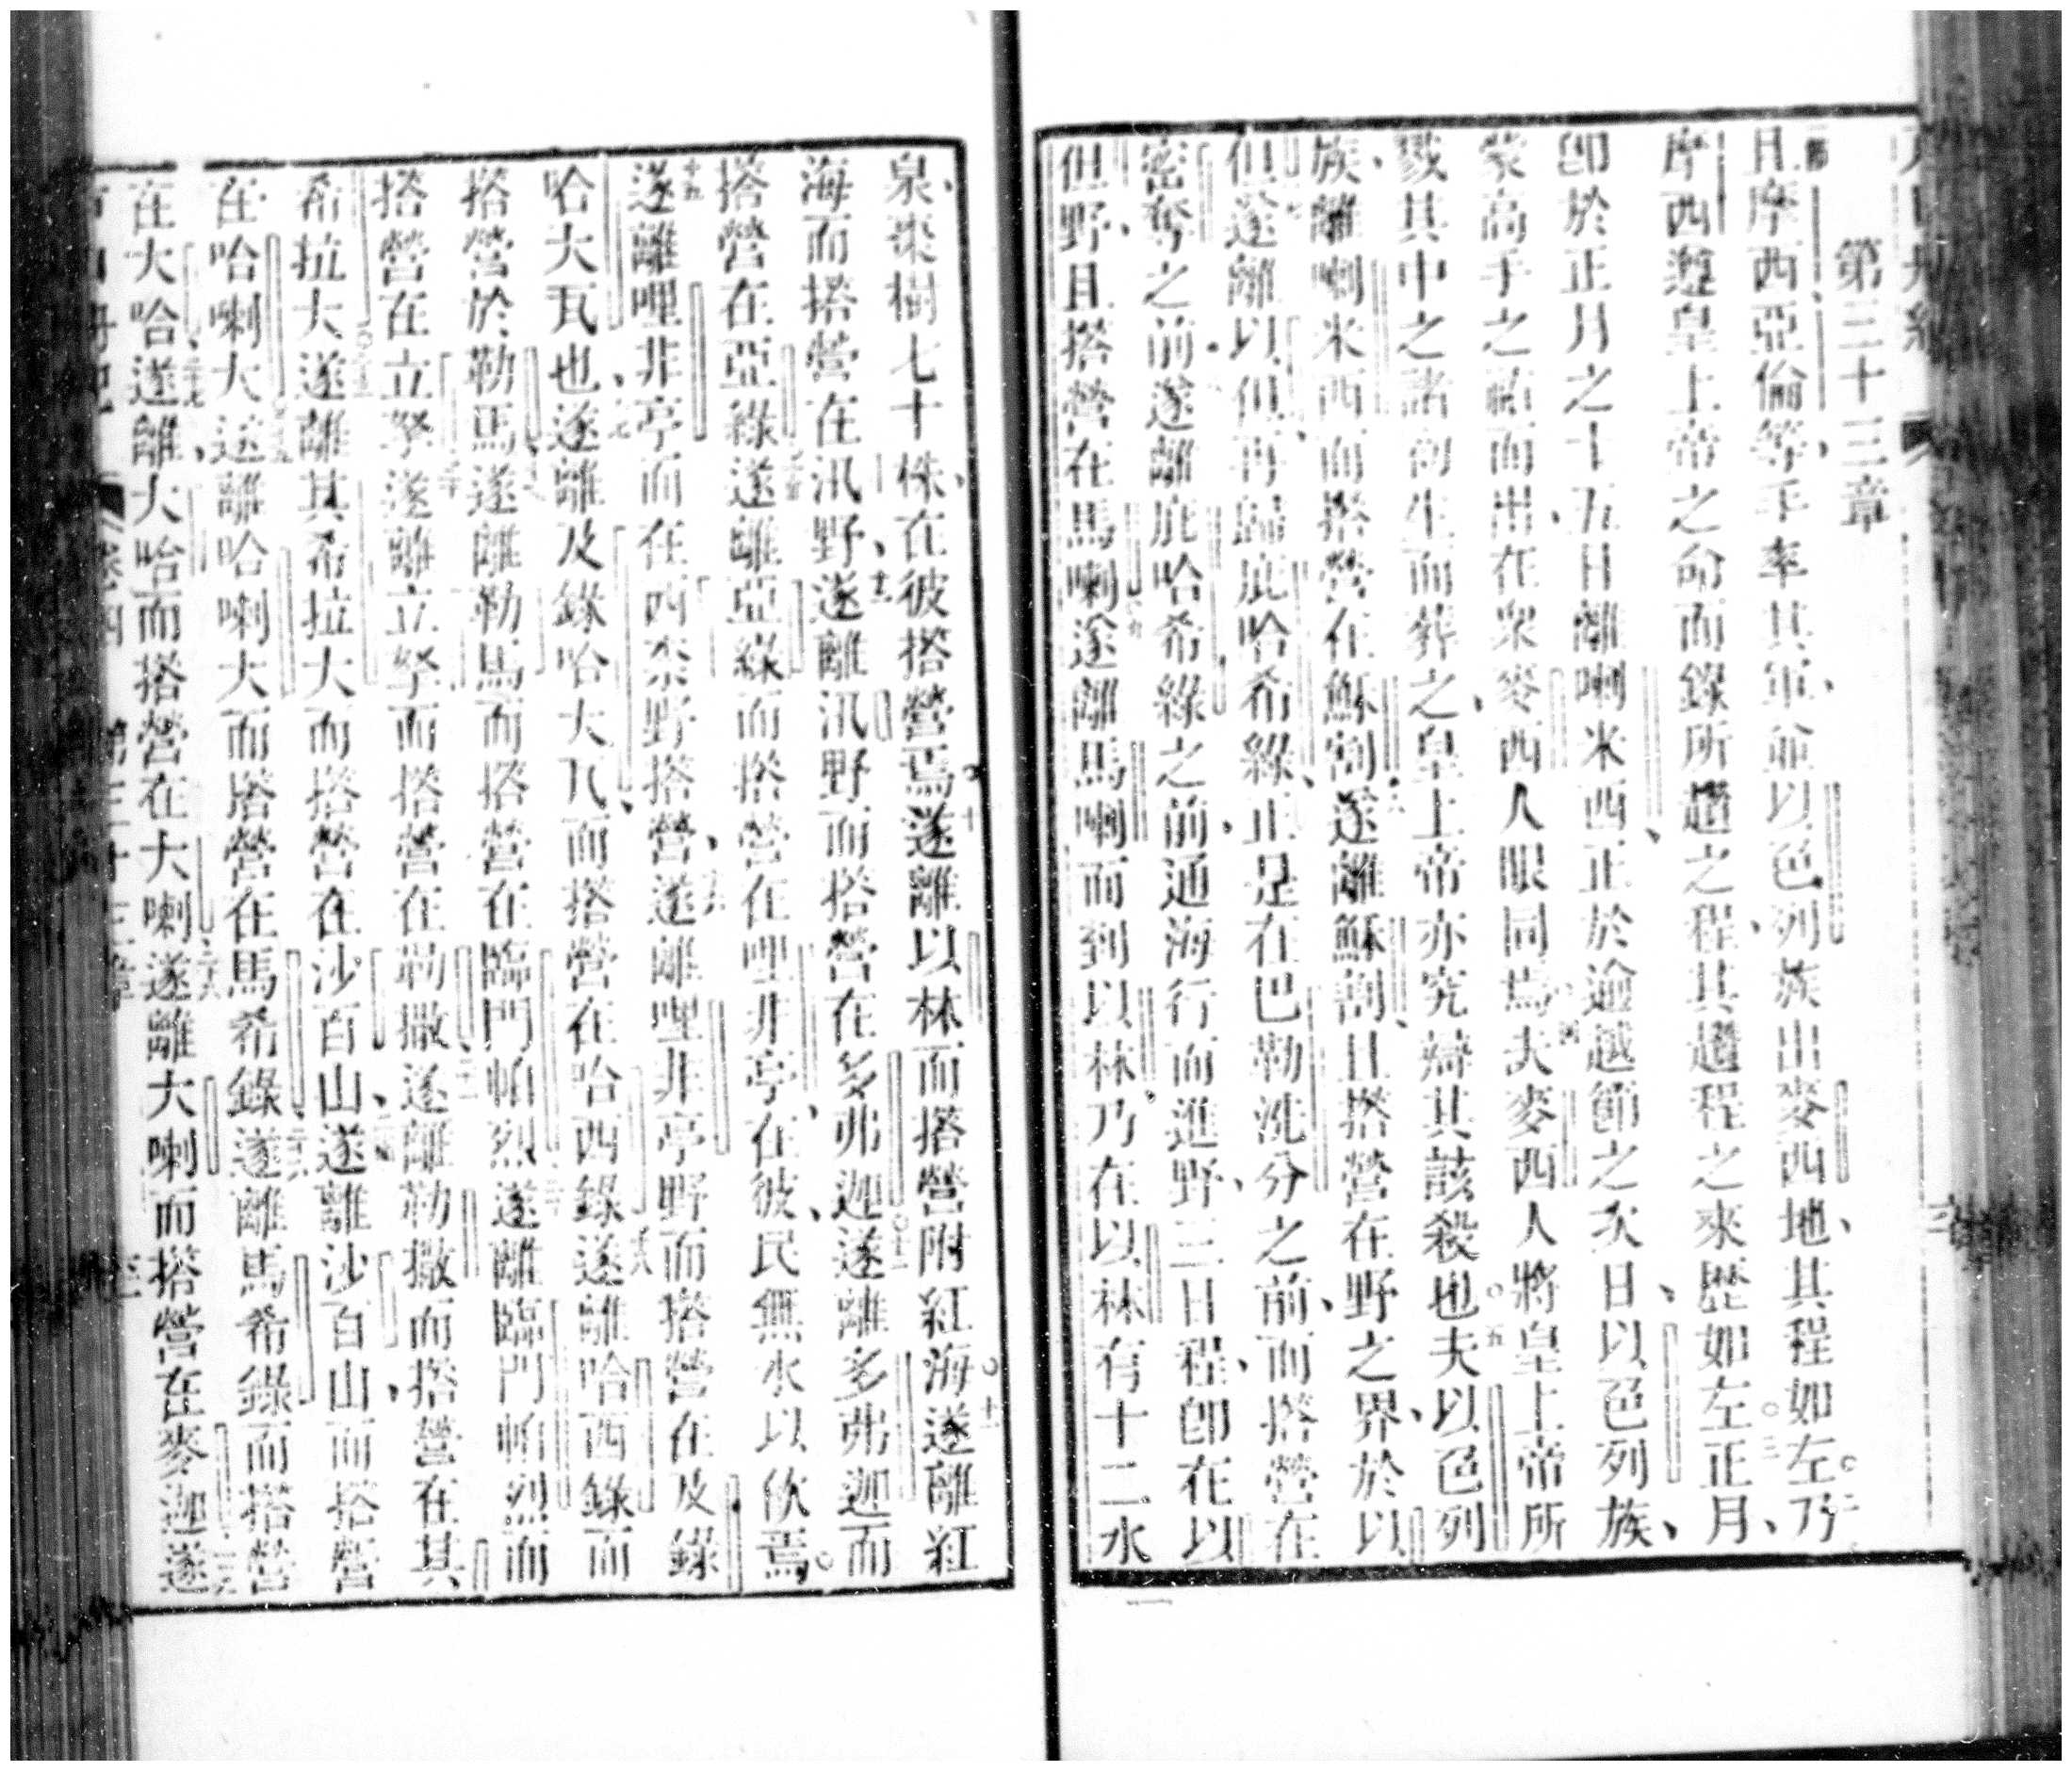 第三十三章
且摩西亞倫等手率其軍而以色列族出麥西地其程如左乃
摩西遵皇上帝之命而錄所趲之程其趲程之來歷如左正月
卽於正月之十五日離喇米西正於逾越節之次日以色列族
蒙高手之祐而出在眾麥西人眼同焉夫麥西人將皇上帝所
戮其中之諸初生而葬之皇上帝亦究辦其該殺也夫以色列
族離喇米西而搭營在穌割遂離穌割且搭營在野之界於以
但遂離以但再歸庇哈希綠正是在巴勒洗分之前而搭營在
密奪之前遂離庇哈希綠之前通海行而進野三日程卽在以
但野且搭營在馬喇遂離馬喇而到以林乃在以林有十二水
泉棗樹七十株在彼搭營焉遂離以林而搭營附紅海遂離紅
海而搭營在汛野遂離汛野而搭營在多弗迦遂離多弗迦而
搭營在亞綠遂離亞綠而搭營在哩非亭在彼民無水以飲焉
遂離哩非亭而在西奈野搭營遂離哩非亭野而搭營在及錄
哈大瓦也遂離及錄哈大瓦而搭營在哈西錄遂離哈西錄而
搭營於勒馬遂離勒馬而搭營在臨門帕烈遂離臨門帕烈而
搭營在立拏遂離立拏而搭營在勒撒遂離勒撒而搭營在其
希拉大遂離其希拉大而搭營在沙百山遂離沙百山而搭營
在哈喇大遂離哈喇大而搭營在馬希錄遂離馬希錄而搭營
在大哈遂離大哈而搭營在大喇遂離大喇而搭營在麥迦遂
卷四 第三十三章